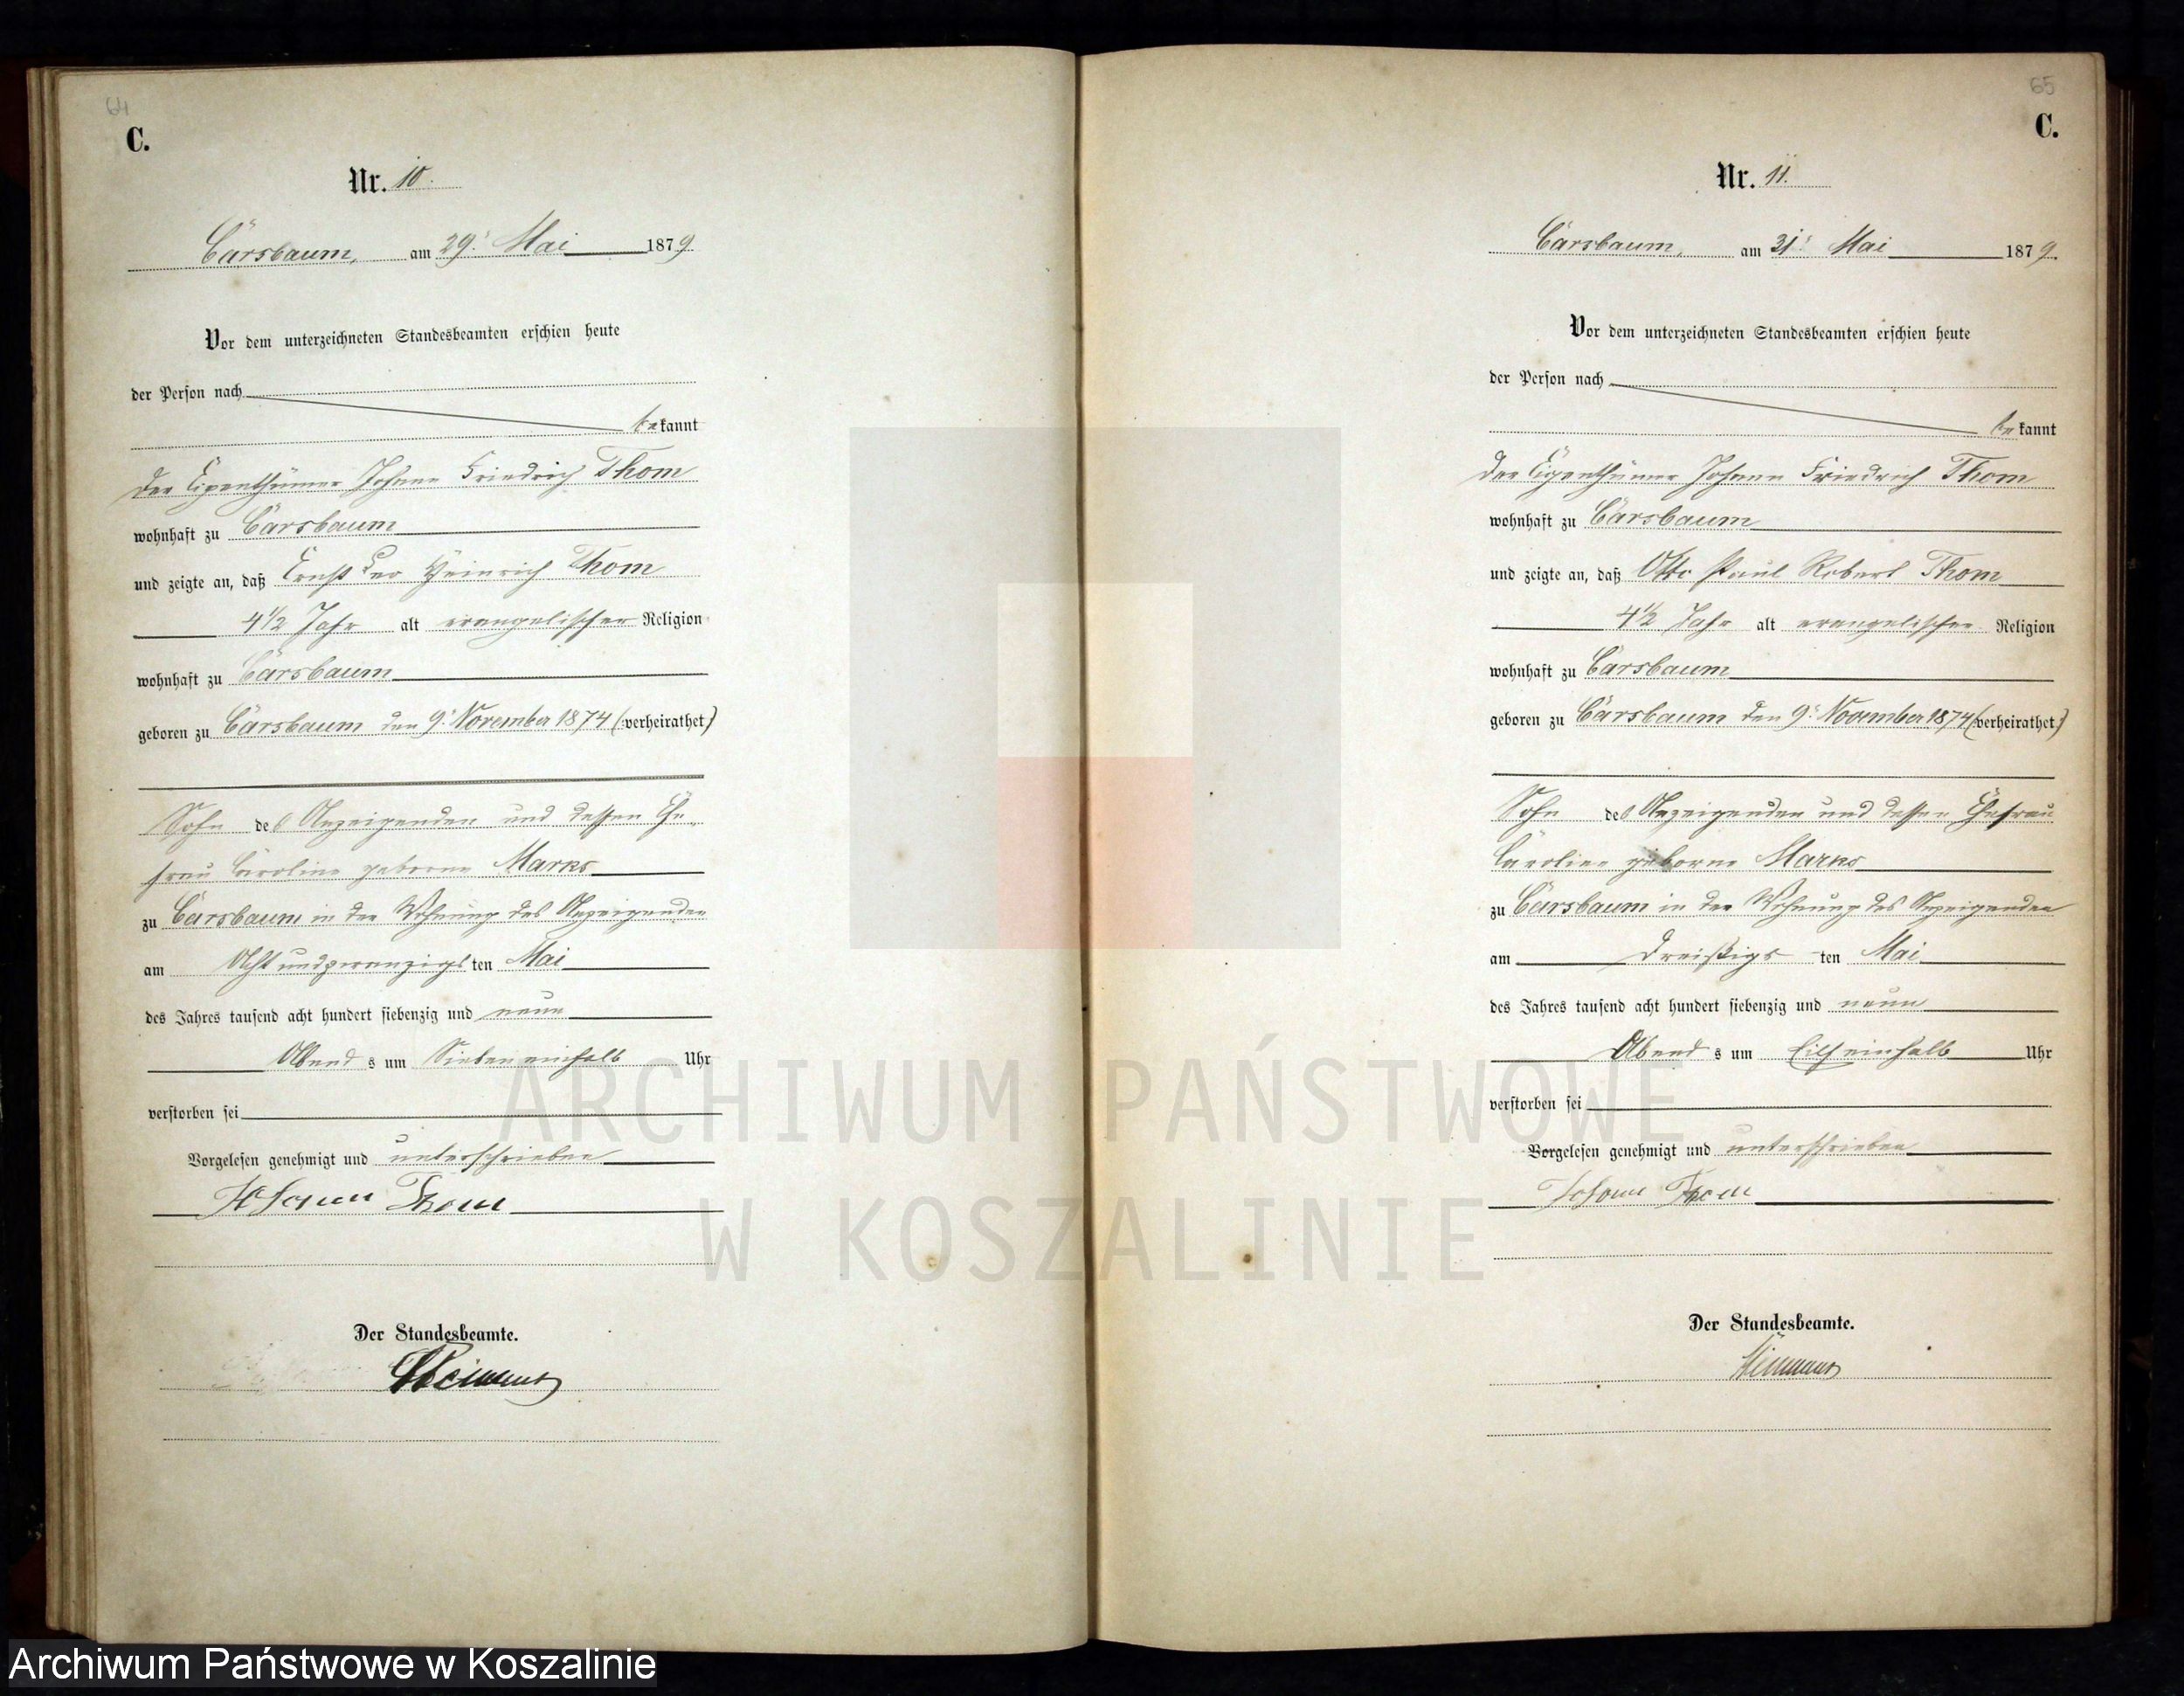 64
C.
Nr. 10.
Carsbaum, am 29. Mai 1879.
Vor dem unterzeichneten Standesbeamten erschien heute
der Person nach
bekannt
der Eigenthümer Johann Friedrich Thom
wohnhaft zu Carsbaum
und zeigte an, daß Ernst Leo Heinrich Thom
4½ Jahr alt evangelischer Religion
wohnhaft zu Carsbaum
geboren zu Carsbaum den 9. November 1874 (verheirathet)
Sohn des Anzeigenden und dessen Ehe-
frau Caroline geborne Marks
zu Carsbaum in der Wohnung des Anzeigenden
am Acht und zwanzigsten Mai
des Jahres tausend acht hundert siebenzig und neun
Abends um Sieben einhalb Uhr
verstorben sei
Vorgelesen genehmigt und unterschrieben
Johann Thom
Der Standesbeamte.
65
C.
Nr. 11.
Carsbaum, am 31. Mai 1879.
Vor dem unterzeichneten Standesbeamten erschien heute
der Person nach
bekannt
der Eigenthümer Johann Friedrich Thom
wohnhaft zu Carsbaum
und zeigte an, daß Otto Paul Robert Thom
4½ Jahr alt evangelischer Religion
wohnhaft zu Carsbaum
geboren zu Carsbaum den 9. November 1874 (verheirathet)
Sohn des Anzeigenden und dessen Ehefrau
Caroline geborne Marks
zu Carsbaum in der Wohnung des Anzeigenden
am Dreißigsten Mai
des Jahres tausend acht hundert siebenzig und neun
Abends um Eilf einhalb Uhr
verstorben sei
Vorgelesen genehmigt und unterschrieben
Johann Thom
Der Standesbeamte.
ARCHIWUM PAŃSTWOWE
W KOSZALINIE
Archiwum Państwowe w Koszalinie